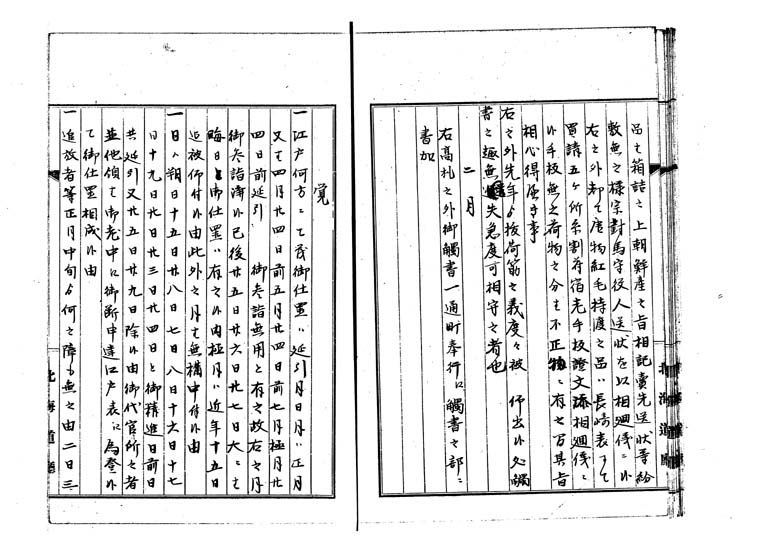 品々箱詰之上朝鮮産之旨相記賣先送状等紛
敷無之様宗對馬守役人送状を以相廻儀ニ
右之外都て唐物紅毛持渡之品ハ長崎表ニて
買請五ヶ所糸割符宿老手板證文添相廻儀ニ
手板無之荷物之分ハ不正物ニ有之万其旨
相心得可申事
右之外先年ゟ抜荷筋之義度々被仰出外処觸
書之趣無失急度可相守之者也
二月
右高札之外御觸書一通町奉行江觸書之部ニ
書加
覚
一江戸何方ニても御仕置ハ延引月日ハ正月
又て四月廿四日前五月廿四日前七月極月廿
四日前延引 御参詣無用と有之故右之月
御参詣済外已後廿五日廿六日廿七日大ニて
晦日も御仕置ハ有之外内極月ハ近年十五日
迄被仰付外由此外之月て無構申付外由
一日ハ朔日十五日廿八日七日八日十六日十七
日十九日廿日廿三日廿四日と御精進日前日
共延引又廿五日廿九日除外由御代官所之者
並他領て御老中江御断申達江戸表江為登外
て御仕置相成外由
一追放者等正月中旬ゟ何之障も無之由二日三
北海道廳